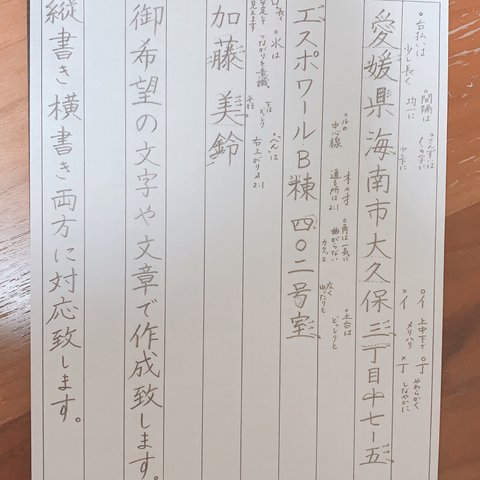 愛媛県海南市大久保三丁目十七ー五
エスポワールB棟四〇二号室
加藤美鈴
御希望の文字や文章で作成致します。
縦書き横書き両方に対応致します。
右払いは
少し長く
間隔は
均一に
くの字に
×イ
○イ
上中下で
メリハリ
×丁
○丁
やわらかく
しなやかに
ルの
中心線
角は一気に
曲がらない
カクッと
広く
ゆったりと
土台は
どっしりと
氷は
つながりを意識
右上がり